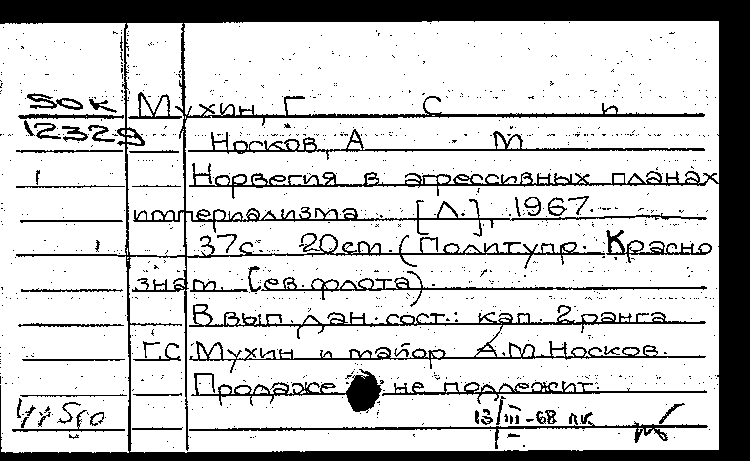 50к Мухин, Г С и
12329 Носков, А М
Норвегия в агрессивных планах
империализма [Л.], 1967.
37с. 20см. (Политупр. Красно
знам. Сев. флота).
В вып. дан. сост.: кап. 2 ранга
Г.С. Мухин и майор А.М. Носков.
Продаже не подлежит.
13/III-68 ПК